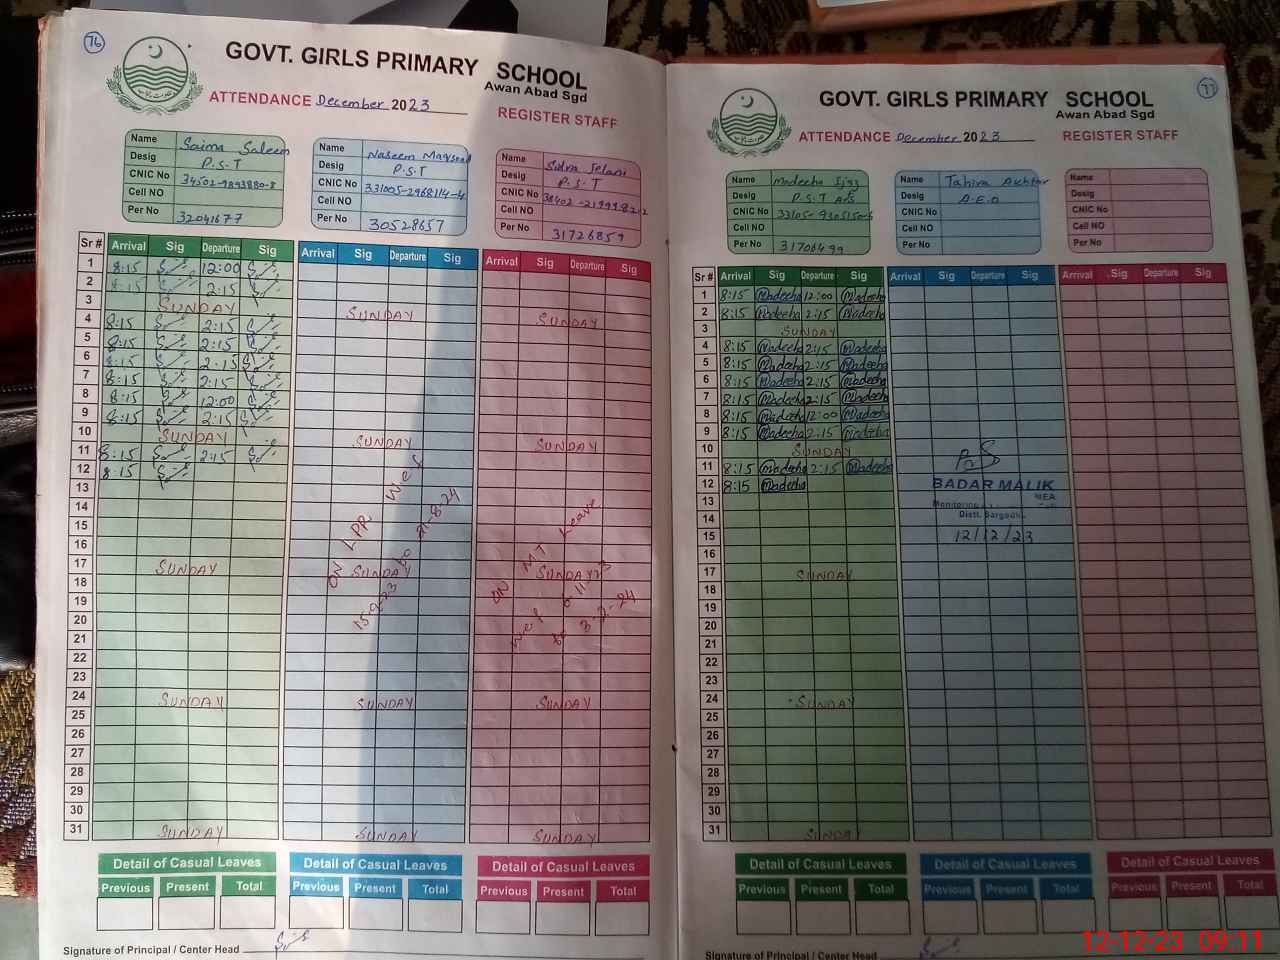 76
GOVT. GIRLS PRIMARY SCHOOL
Awan Abad Sgd
ATTENDANCE December 2023
REGISTER STAFF
Name Saima Saleem
Desig P.S.T
CNIC No 34502-9893880-8
Cell NO
Per No 32041677
Name Naseem Maqsood
Desig P.S.T
CNIC No 331005-2968114-4
Cell NO
Per No 30528657
Name Sidra Jelani
Desig P.S.T
CNIC No
Cell NO
Per No 31726859
Sr # Arrival Sig Departure Sig Arrival Sig Departure Sig Arrival Sig Departure Sig
1 8:15 12:00
2 8:15 2:15
3 SUNDAY SUNDAY SUNDAY
4 8:15 2:15
5 8:15 2:15
6 8:15 2:15
7 8:15 2:15
8 8:15 12:00
9 8:15 2:15
10 SUNDAY SUNDAY SUNDAY
11 8:15 2:15
12 8:15
13
14
15
16
17 SUNDAY SUNDAY SUNDAY
18
19
20
21
22
23
24 SUNDAY SUNDAY SUNDAY
25
26
27
28
29
30
31 SUNDAY SUNDAY SUNDAY
ON LPR w.e.f
15-9-23 to 21-8-24
ON MT Leave
w.e.f 6-11-23
to 3-2-24
Detail of Casual Leaves Detail of Casual Leaves Detail of Casual Leaves
Previous Present Total Previous Present Total Previous Present Total
Signature of Principal / Center Head
77
GOVT. GIRLS PRIMARY SCHOOL
Awan Abad Sgd
ATTENDANCE December 2023
REGISTER STAFF
Name Madeeha Ijaz
Desig P.S.T
CNIC No
Cell NO
Per No 31706499
Name Tahira Akhtar
Desig A.E.O
CNIC No
Cell NO
Per No
Name
Desig
CNIC No
Cell NO
Per No
Sr # Arrival Sig Departure Sig Arrival Sig Departure Sig Arrival Sig Departure Sig
1 8:15 Madeeha 12:00 Madeeha
2 8:15 Madeeha 2:15 Madeeha
3 SUNDAY
4 8:15 Madeeha 2:15 Madeeha
5 8:15 Madeeha 2:15 Madeeha
6 8:15 Madeeha 2:15 Madeeha
7 8:15 Madeeha 2:15 Madeeha
8 8:15 Madeeha 12:00 Madeeha
9 8:15 Madeeha 2:15 Madeeha
10 SUNDAY
11 8:15 Madeeha 2:15 Madeeha
12 8:15 Madeeha
13
14
15
16
17 SUNDAY
18
19
20
21
22
23
24 SUNDAY
25
26
27
28
29
30
31 SUNDAY
BADAR MALIK
MEA
Monitoring
Distt. Sargodha
12/12/23
Detail of Casual Leaves Detail of Casual Leaves Detail of Casual Leaves
Previous Present Total Previous Present Total Previous Present Total
Signature of Principal / Center Head
12-12-23 09:11